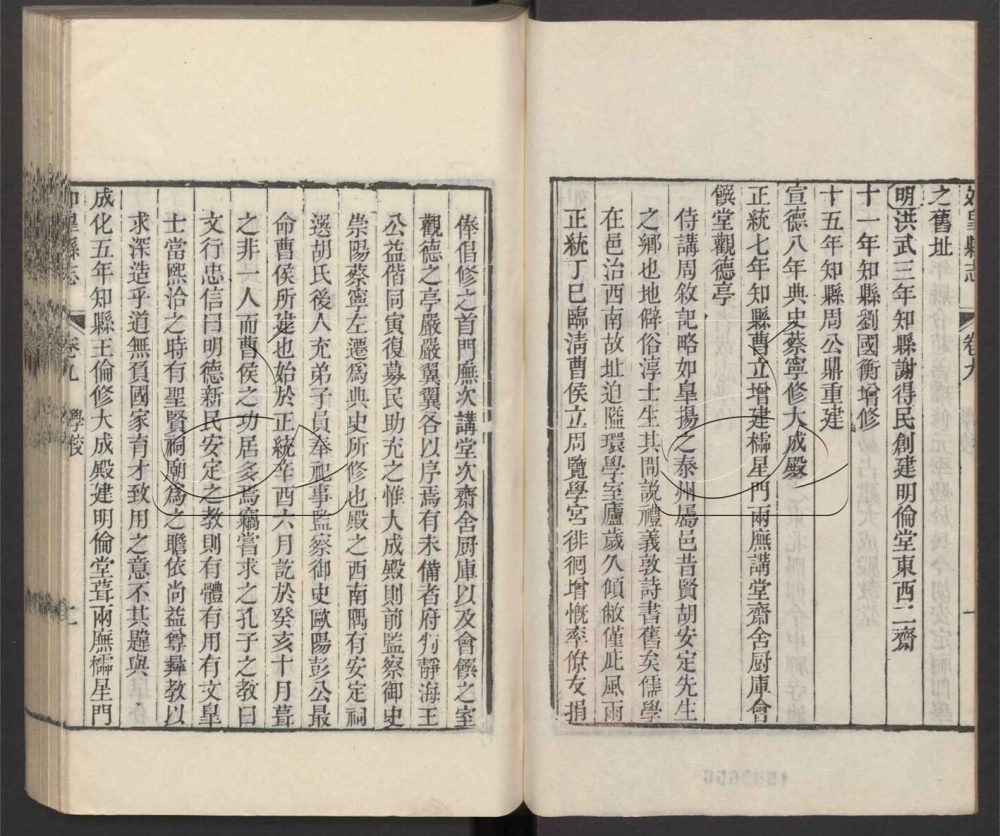 如皋縣志 卷九
之舊址
明洪武三年知縣謝得民創建明倫堂東西二齋
十一年知縣劉國衡增修
十五年知縣周公鼎重建
宣德八年典史蔡寧修大成殿
正統七年知縣曹立增建櫺星門兩廡講堂齋舍厨庫會
饌堂觀德亭
侍講周敘記略如皋揚之泰州屬邑昔賢胡安定先生
之鄉也地僻俗淳士生其間説禮義敦詩書舊矣儒學
在邑治西南故址迫隘環學室廬歲久傾敝僅庇風雨
正統丁巳臨清曹侯立周覽學宫徘徊增慨率僚友捐
俸倡修之首門廡次講堂次齋舍厨庫以及會饌之室
觀德之亭嚴嚴翼翼各以序焉有未備者府判靜海王
公益偕同寅復募民助充之惟大成殿則前監察御史
崇陽蔡寧左遷爲典史所修也殿之西南隅有安定祠
選胡氏後人充弟子員奉祀事監察御史歐陽彭公最
命曹侯所建也始於正統辛酉六月訖於癸亥十月葺
之非一人而曹侯之功居多焉竊嘗求之孔子之教曰
文行忠信曰明德新民安定之教則有體有用有文皇
士當熙洽之時有聖賢祠廟爲之瞻依尚益尊彝教以
求深造乎道無負國家育才致用之意不其韙與
成化五年知縣王倫修大成殿建明倫堂葺兩廡櫺星門
如皋縣志 卷九 學校